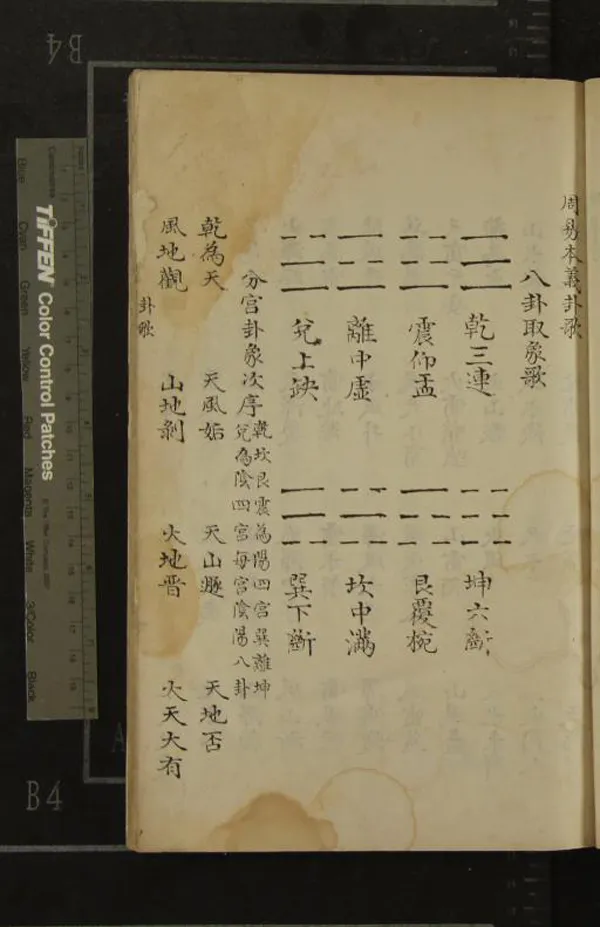 周易本義卦歌
八卦取象歌
☰ 乾三連 ☷ 坤六斷
☳ 震仰盂 ☶ 艮覆椀
☲ 離中虛 ☵ 坎中滿
☱ 兌上缺 ☴ 巽下斷
分宮卦象次序 乾坎艮震為陽四宮巽離坤
兌為陰四宮每宮陰陽八卦
乾為天 天風姤 天山遯 天地否
風地觀 山地剝 火地晋 火天大有
卦歌
B4
B4
TIFFEN Color Control Patches
Blue
Cyan
Green
Yellow
Red
Magenta
White
3/Color
Black